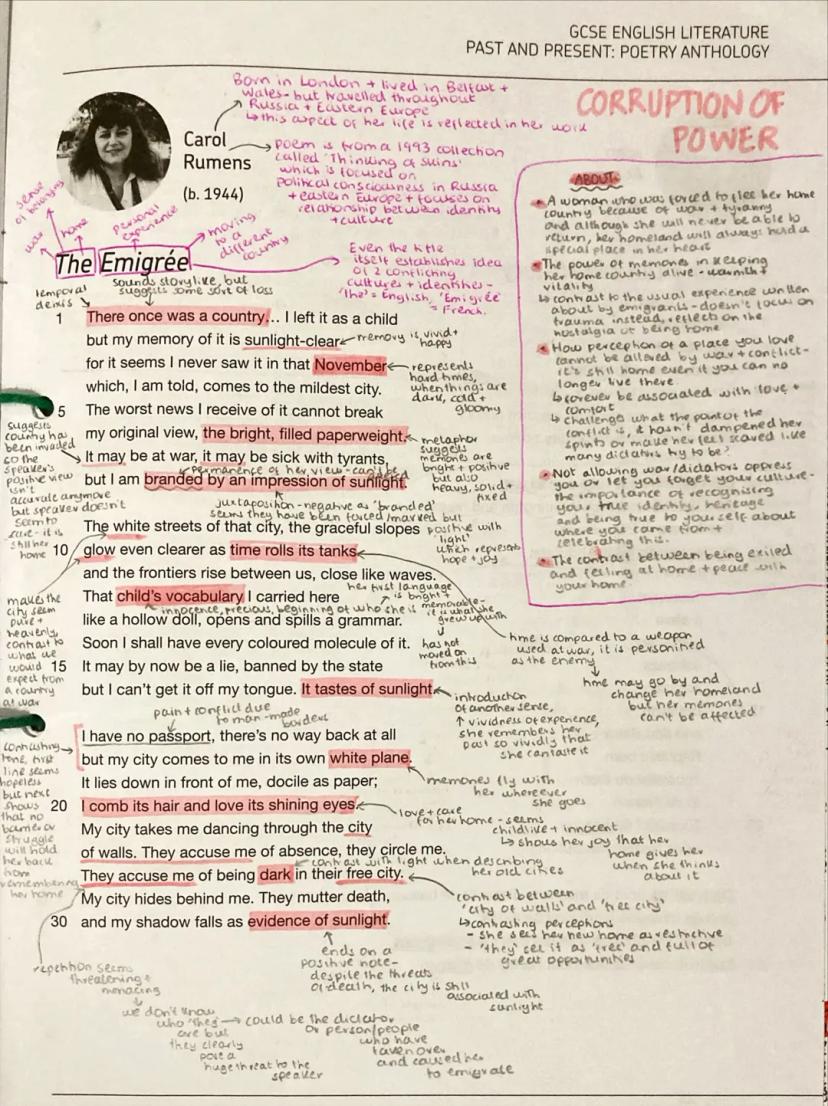 GCSE ENGLISH LITERATURE
PAST AND PRESENT: POETRY ANTHOLOGY
CORRUPTION OF
POWER
Born in London + lived in Belfast +
Wales - but travelled throughout
Russia + Eastern Europe
↳ this aspect of her life is reflected in her work
Carol
Rumens
(b. 1944)
poem is from a 1993 collection
called 'Thinking of Skins'
which is focused on
political consciousness in Russia
+ eastern Europe + focuses on
relationship between identity
+ culture
sense
of belonging
war
home
personal
experience
moving
to a
different
country
The Emigrée
Even the title
itself establishes idea
of 2 conflicting
cultures + identities -
'the' = English, 'Emigrée'
= French.
temporal
deixis
sounds storylike, but
suggests some sort of loss
1 There once was a country... I left it as a child
but my memory of it is sunlight-clear
memory is vivid +
happy
for it seems I never saw it in that November
represents
hard times,
when things are
dark, cold +
gloomy
which, I am told, comes to the mildest city.
5 The worst news I receive of it cannot break
my original view, the bright, filled paperweight.
metaphor
suggests
memories are
bright + positive
but also
heavy, solid +
fixed
It may be at war, it may be sick with tyrants,
permanence of her view - can't be
but I am branded by an impression of sunlight.
juxtaposition - negative as 'branded'
seems they have been forced/marked but
positive with
'light'
which represents
hope + joy
suggests
country has
been invaded
so the
speaker's
positive view
isn't
accurate anymore
but speaker doesn't
seem to
care - it is
still her
home
The white streets of that city, the graceful slopes
10 glow even clearer as time rolls its tanks
and the frontiers rise between us, close like waves.
That child's vocabulary I carried here
her first language
is bright +
memorable -
it is what she
grew up with
has not
moved on
from this
innocence, precious, beginning of who she is
like a hollow doll, opens and spills a grammar.
Soon I shall have every coloured molecule of it.
15 It may by now be a lie, banned by the state
but I can't get it off my tongue. It tastes of sunlight.
makes the
city seem
pure +
heavenly
contrast to
what we
would
expect from
a country
at war
time is compared to a weapon
used at war, it is personified
as the enemy
time may go by and
change her homeland
but her memories
can't be affected
introduction
of another sense,
↑ vividness of experience,
she remembers her
past so vividly that
she can taste it
pain + conflict due
to man-made
borders
I have no passport, there's no way back at all
but my city comes to me in its own white plane.
It lies down in front of me, docile as paper;
memories fly with
her wherever
she goes
20 I comb its hair and love its shining eyes.
love + care
for her home - seems
childlike + innocent
↳ shows her joy that her
home gives her
when she thinks
about it
My city takes me dancing through the city
of walls. They accuse me of absence, they circle me.
contrast with light when describing
her old cities
They accuse me of being dark in their free city.
My city hides behind me. They mutter death,
30 and my shadow falls as evidence of sunlight.
contrasting
tone, first
line seems
hopeless
but next
shows
that no
barrier or
struggle
will hold
her back
from
remembering
her home
contrast between
'city of walls' and 'free city'
↳ contrasting perceptions
- she sees her new home as restrictive
- 'they' see it as 'free' and full of
great opportunities
ends on a
positive note -
despite the threats
of death, the city is still
associated with
sunlight
repetition seems
threatening +
menacing
we don't know
who 'they'
are but
they clearly
pose a
huge threat to the
speaker
could be the dictator
or person/people
who have
taken over
and caused her
to emigrate
ABOUT
A woman who was forced to flee her home
country because of war + tyranny
and although she will never be able to
return, her homeland will always hold a
special place in her heart
The power of memories in keeping
her home country alive - warmth +
vitality
↳ contrast to the usual experience written
about by emigrants - doesn't focus on
trauma instead, reflects on the
nostalgia of being home
How perception of a place you love
cannot be altered by war + conflict -
it's still home even if you can no
longer live there.
↳ forever be associated with love +
comfort
↳ challenge what the point of the
conflict is, it hasn't dampened her
spirits or make her feel scared like
many dictators try to be?
Not allowing war/dictators oppress
you or let you forget your culture -
the importance of recognising
your true identity, heritage
and being true to yourself about
where you came from +
celebrating this.
The contrast between being exiled
and feeling at home + peace with
your home.